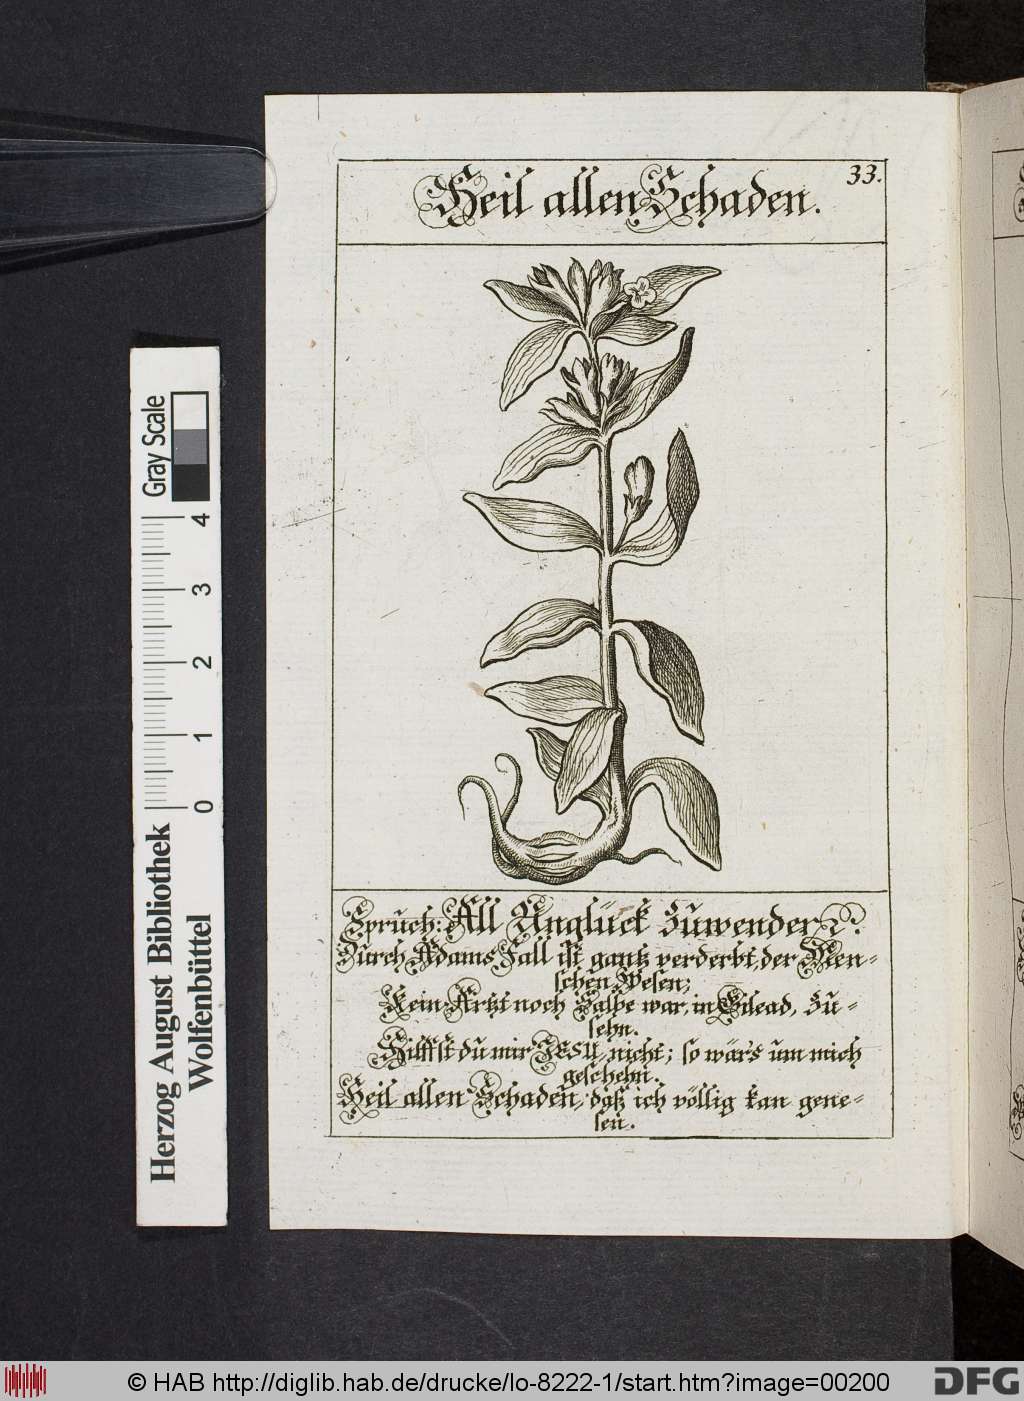 33.
Heil allen Schaden.
Spruch: All Unglück Zuwender
Durch Adams Fall ist gantz verderbt, der Men=
schen Wesen;
Kein Artzt noch Salbe war, in Gilead, zu=
sehn.
Hilffst du mir JESU, nicht; so wär's um mich
geschehn.
Heil allen Schaden, daß ich völlig kan gene=
sen.
Gray Scale
4
3
2
1
0
Herzog August Bibliothek
Wolfenbüttel
© HAB http://diglib.hab.de/drucke/lo-8222-1/start.htm?image=00200
DFG